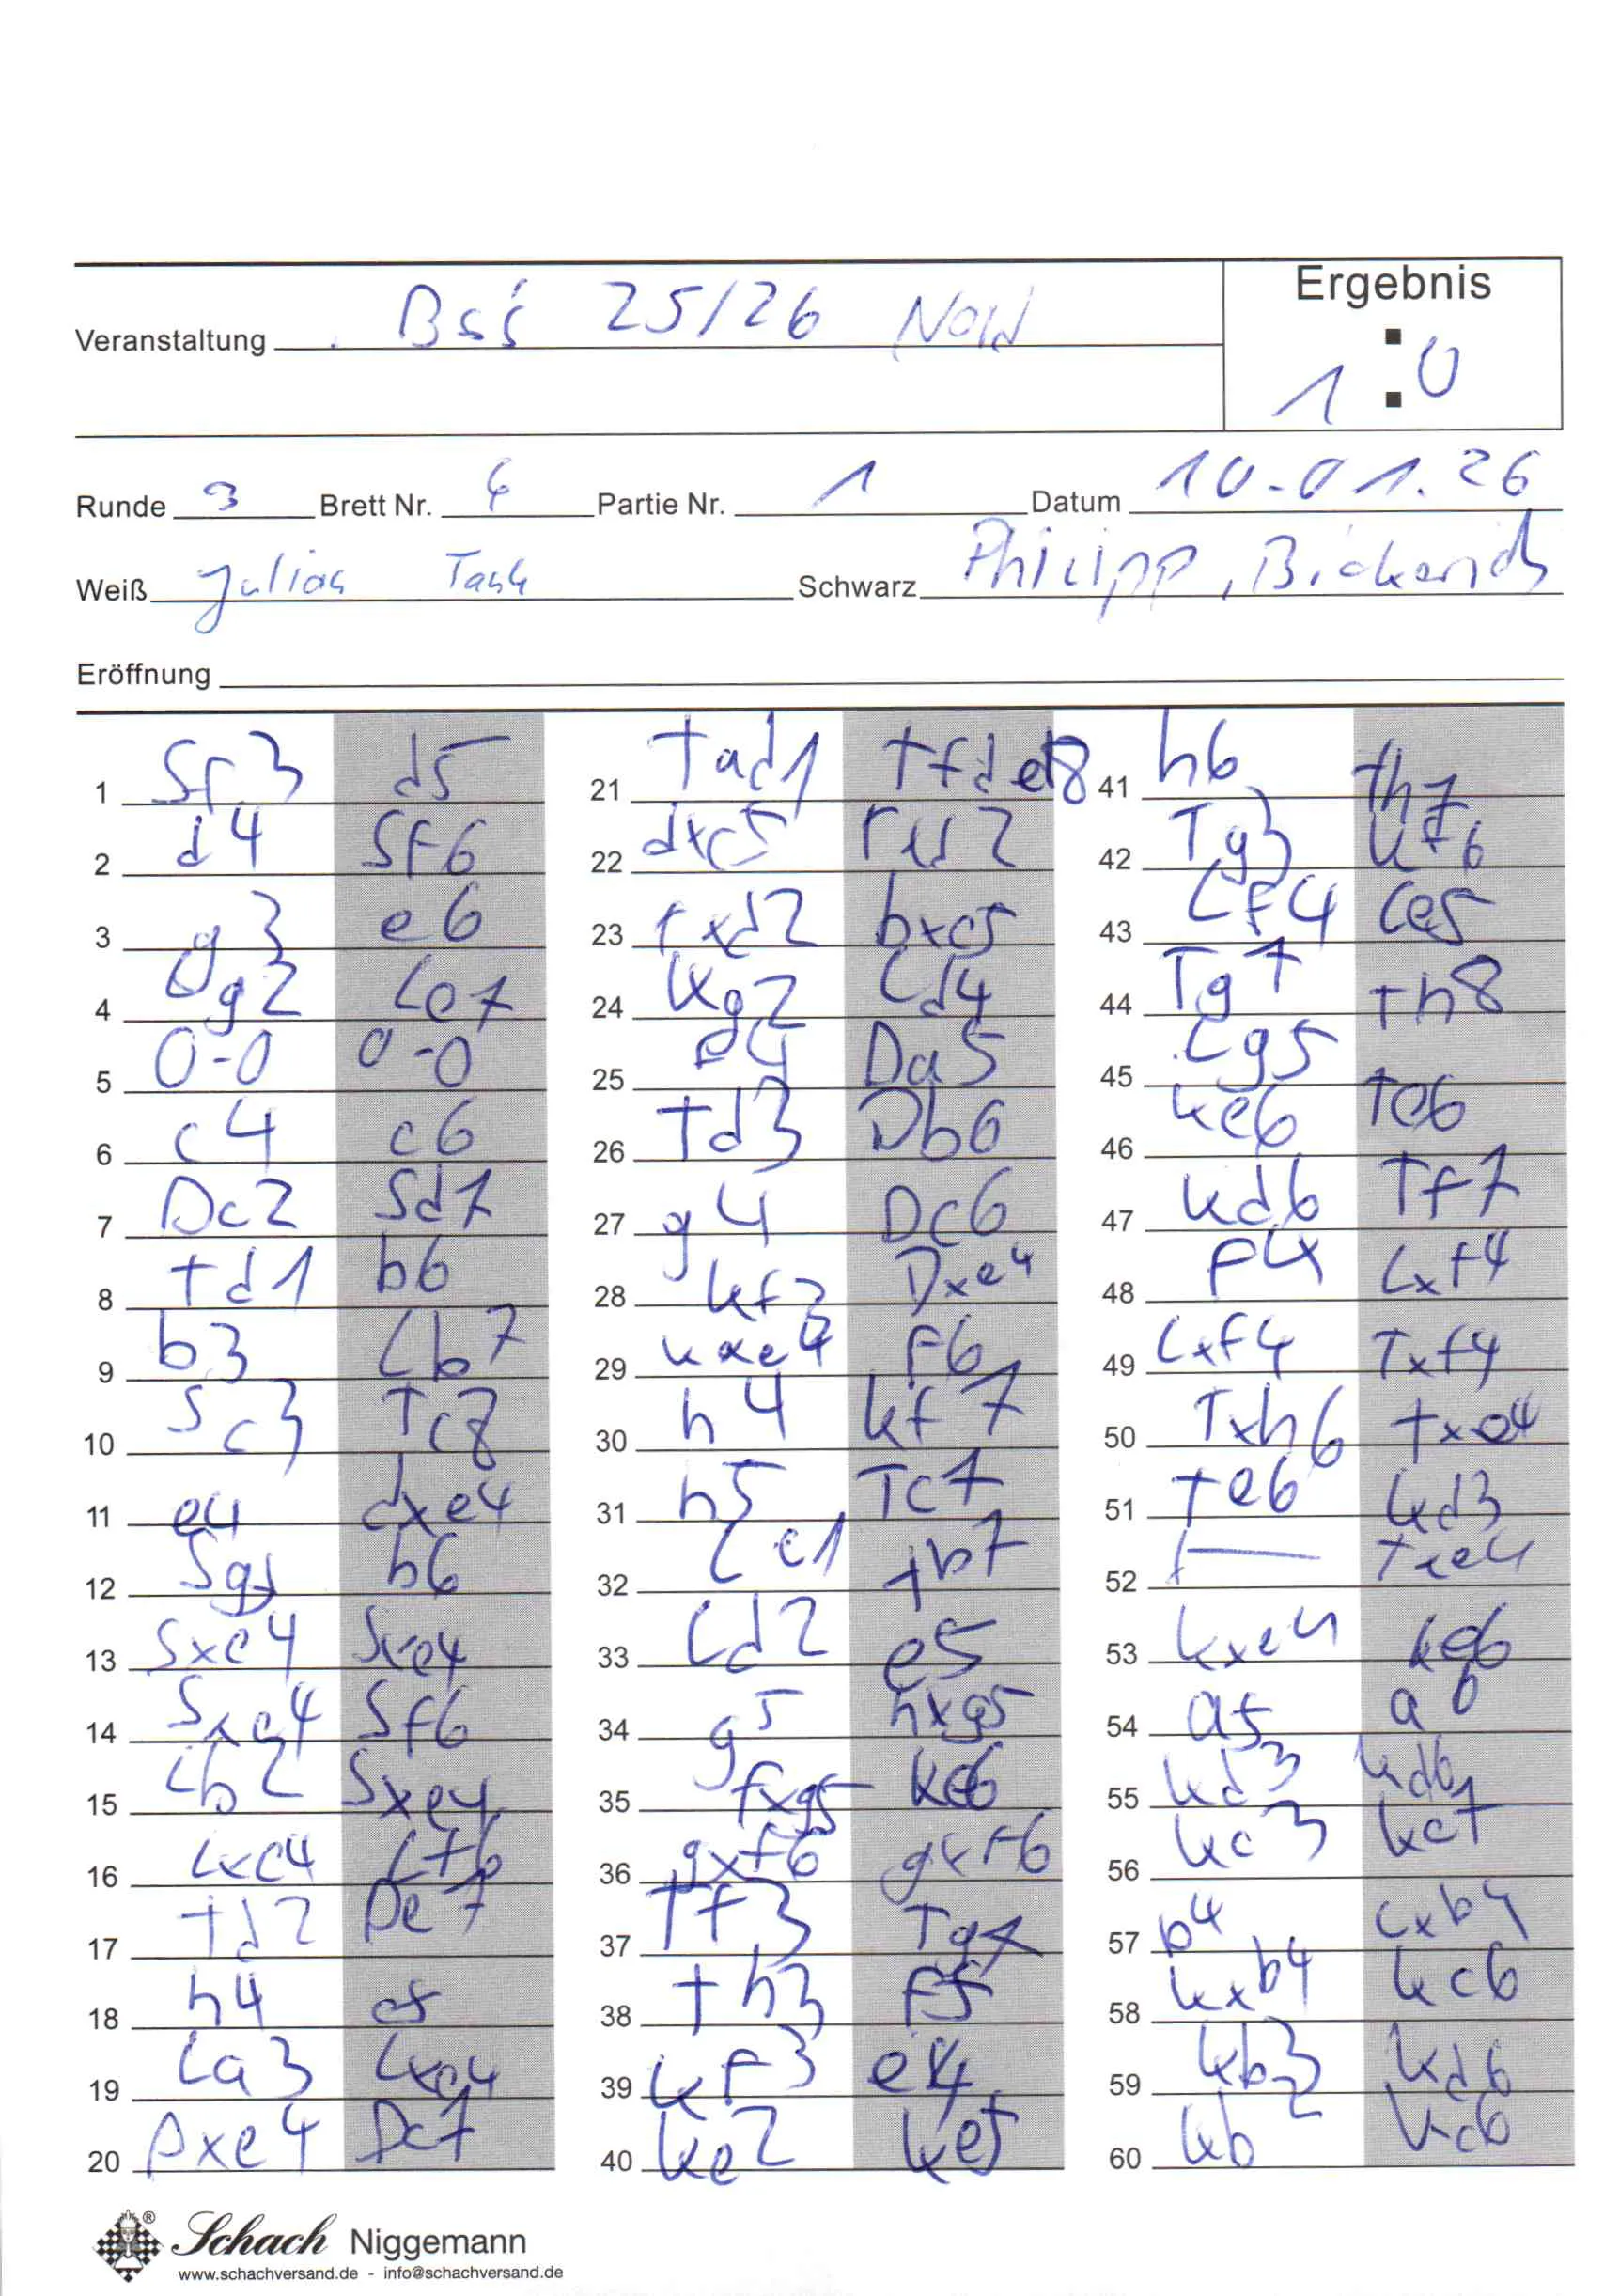 Ergebnis
Veranstaltung 25/26
1 : 0
Runde 3 Brett Nr. 6 Partie Nr. 1 Datum 10.01.26
Weiß Julian Schwarz Philipp,
Eröffnung
1 Sf3 d5
2 d4 Sf6
3 g3 e6
4 Lg2 Le7
5 0-0 0-0
6 c4 c6
7 Dc2 Sd7
8 Td1 b6
9 b3 Lb7
10 Sc3 Tc8
11 e4 dxe4
12 Sg5 h6
13 Sxe4 Sxe4
14 Sxe4 Sf6
15 Lb2 Sxe4
16 Lxe4 Lf6
17 Td2 De7
18 h4 c5
19 La3 Lxe4
20 Dxe4 Dc7
21 Tad1
22 dxc5
23 Txd2 bxc5
24 Kg2 Ld4
25 Da5
26 Td3 Db6
27 g4 Dc6
28 Kf3 Dxe4
29 Kxe4 f6
30 h4 Kf7
31 h5 Tc7
32 Lc1 Tb7
33 Ld2 e5
34 g5 hxg5
35 fxg5 Ke6
36 gxf6 gxf6
37 Tf3 Tg7
38 Th3 f5
39 Kf3 e4
40 Ke2 Ke5
41 h6 Th7
42 Tg3 Kf6
43 Lf4 Le5
44 Tg7 Th8
45 Lg5
46 Ke6 Te6
47 Kd6 Tf7
48 f4 Lxf4
49 Lxf4 Txf4
50 Txh6 Txe4
51 Te6 Kd3
52 Txe4
53 Kxe4 Ke6
54 a5 a6
55 Kd3 Kd6
56 Kc3 Kc7
57 b4 cxb4
58 Kxb4 Kc6
59 Kb3 Kd6
60 Kb2 Kc6
Schach Niggemann
www.schachversand.de - info@schachversand.de